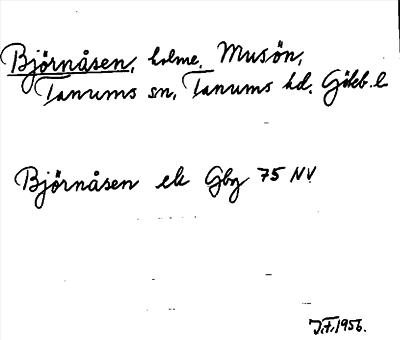 Björnåsen, holme, Musön,
Tanums sn, Tanums hd. Gökb. l
Björnåsen ek Gby 75 NV
J.F. 1956.